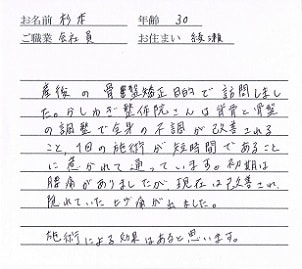 お名前 杉本 年齢 30
ご職業 会社員 お住まい 綾瀬
産後の骨盤矯正目的で訪問しまし
た。かしわざ整体院さんは背骨と骨盤
の調整で全身の不調が改善される
こと、1回の施術が短時間であること
に惹かれて通っています。初期は
腰痛がありましたが、現在は改善され、
隠れていた 痛がれました。
施術による効果はあると思います。